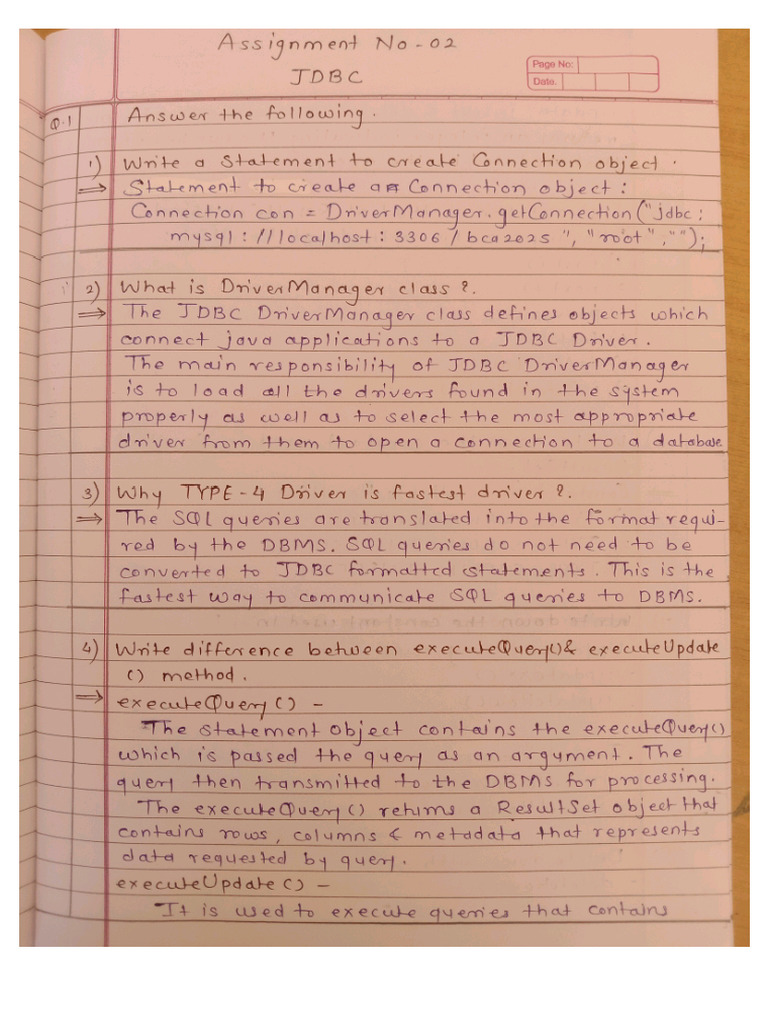 Assignment No-02
JDBC
Page No:
Date.
Q.1 Answer the following.
1) Write a Statement to create Connection object.
⇒ Statement to create a Connection object:
Connection con = DriverManager.getConnection("jdbc:
mysql://localhost:3306/bca2025", "root", "");
2) What is DriverManager class?.
⇒ The JDBC DriverManager class defines objects which
connect java applications to a JDBC Driver.
The main responsibility of JDBC DriverManager
is to load all the drivers found in the system
properly as well as to select the most appropriate
driver from them to open a connection to a database
3) Why TYPE-4 Driver is fastest driver?.
⇒ The SQL queries are translated into the format requi-
red by the DBMS. SQL queries do not need to be
converted to JDBC formatted statements. This is the
fastest way to communicate SQL queries to DBMS.
4) Write difference between executeQuery()& executeUpdate
() method.
⇒ executeQuery() -
The statement object contains the executeQuery()
which is passed the query as an argument. The
query then transmitted to the DBMS for processing.
The executeQuery() returns a ResultSet object that
contains rows, columns & metadata that represents
data requested by query.
executeUpdate() -
It is used to execute queries that contains